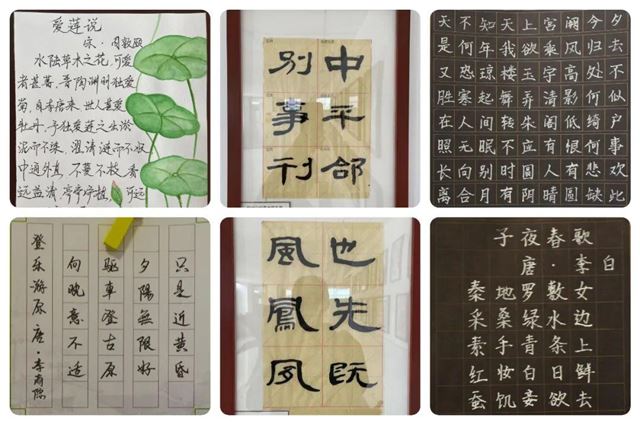 爱莲说
宋·周敦颐
水陆草木之花,可爱
者甚蕃。晋陶渊明独爱
菊。自李唐来,世人甚爱
牡丹。予独爱莲之出淤
泥而不染,濯清涟而不妖
中通外直,不蔓不枝,香
远益清,亭亭净植,可远
中平郃
别事刊
天不知天上宫阙今夕
是何年我欲乘风归去
又恐琼楼玉宇高处不
胜寒起舞弄清影何似
在人间转朱阁低绮户
照无眠不应有恨何事
长向别时圆人有悲欢
离合月有阴晴圆缺此
登乐游原 唐·李商隐
向晚意不适
驅車澄古原
夕陽無限好
只是近黄昏
也先既
風鳳夙
子夜春歌
唐·李白
秦地罗敷女
采桑绿水边
素手青条上
红妆白日鲜
蚕饥妾欲去